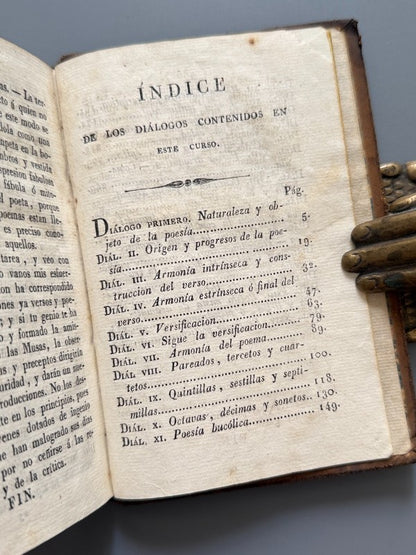 as. — La ter-
to ó quien no
este modo se
dola como un
umpeta en la bo-
mbros y vestida
presion fabulosa
fábula ó mito-
el poeta, por-
oemas estan lle-
es preciso como
aquellos.
tarea, y veo con
vanos mis esfuer-
an correspondido
iones ya versos y poe-
y si tu genio te ha
o y formado la amis-
las Musas, la lectura
y preceptos dirigirán
uridad, y darán nue-
roducciones. No los des
te en los principios, pues
venes dotados de ingenio
que han malogrado sus dias
por no ceñirse á las re-
y de la crítica.
FIN.
ÍNDICE
DE LOS DIÁLOGOS CONTENIDOS EN
ESTE CURSO.
Pág.
DIÁLOGO PRIMERO. Naturaleza y ob-
jeto de la poesía. 5.
DIÁL. II. Orígen y progresos de la poe-
sía. 19.
DIÁL. III. Armonía intrínseca y cons-
truccion del verso. 32.
DIÁL. IV. Armonía estrínseca ó final del
verso. 47.
DIÁL. V. Versificacion. 63.
DIÁL. VI. Sigue la versificacion. 79.
DIÁL. VII. Armonía del poema. 89.
DIÁL. VIII. Pareados, tercetos y cuar-
tetos. 100.
DIÁL. IX. Quintillas, sestillas y septi-
millas. 118.
DIÁL. X. Octavas, décimas y sonetos. 130.
DIÁL. XI. Poesía bucólica. 149.